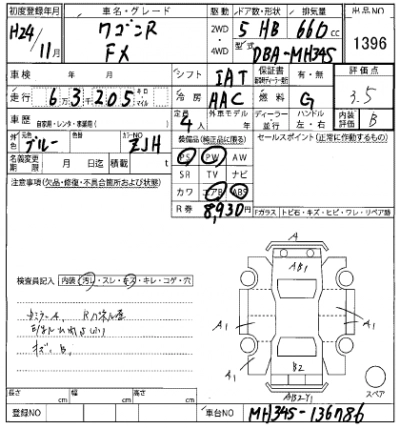 初度登録年月 車名・グレード 駆動 ドア数・形状 排気量 出品NO
H24/11月 ワゴンR FX 2WD・4WD 5 HB 660cc 1396
型式 DBA-MH34S
車検 年 月 シフト IAT 保証書 有・無 評価点
走行 6万3千205 キロ・マイル 冷房 AAC 燃料 G 3.5
車歴 自家用・レンタ・事業用( ) 定員 4人 外車モデル 年 ディーラー・並行 ハンドル 左・右 内装評価 B
外装色 元色 ブルー 色替 カラーNO ZJH 装備品(純正品に限る) セールスポイント(正常に作動するもの)
名義変更期限 月 日迄 積載 t PS PW AW
注意事項(欠品・修復・不具合箇所および状態) SR TV ナビ
カワ エアB ABS
R券 8,930円
Fガラス トビ石・キズ・ヒビ・ワレ・リペア跡
検査員記入 内装(汚レ・スレ・キズ・キレ・コゲ・穴
A
AB1
A1 A1
A1 A1
B2
AB2Y1
キズ、B、
スペア
長さ cm 幅 cm 高さ cm
登録NO 車台NO MH34S-136786